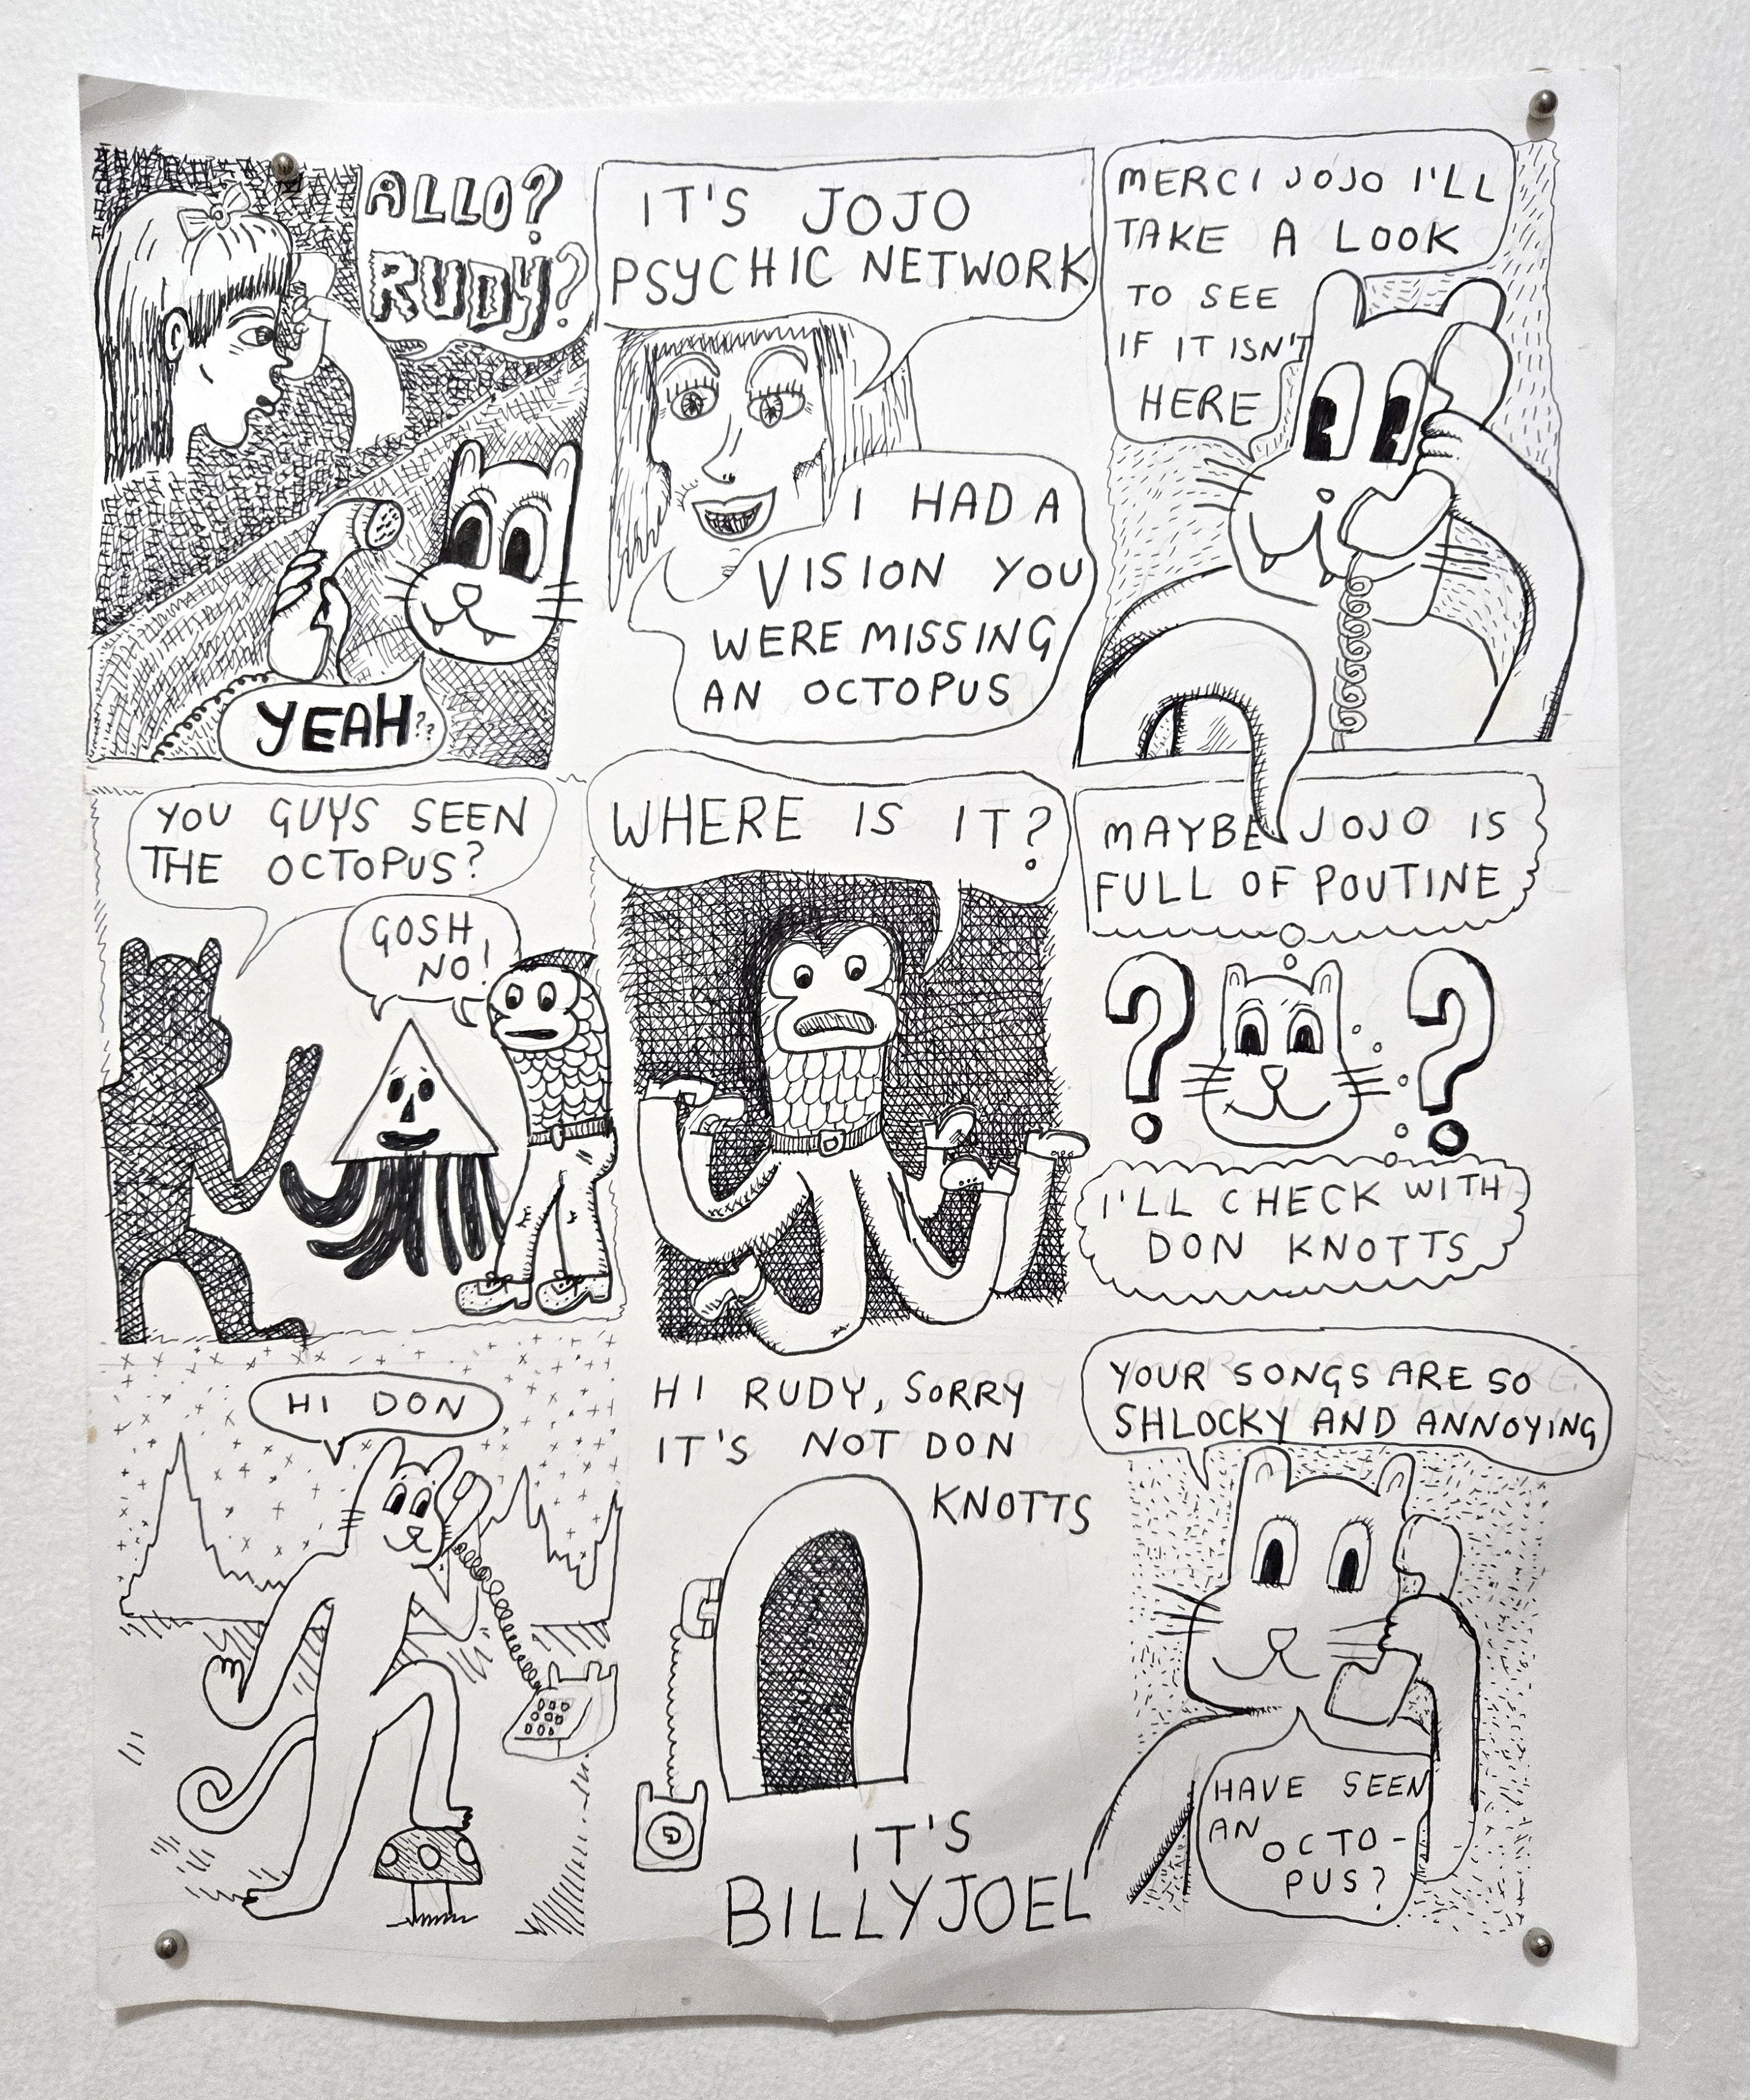 ALLO?
RUDY?
YEAH??
IT'S JOJO
PSYCHIC NETWORK
I HAD A
VISION YOU
WERE MISSING
AN OCTOPUS
MERCI JOJO I'LL
TAKE A LOOK
TO SEE
IF IT ISN'T
HERE
YOU GUYS SEEN
THE OCTOPUS?
GOSH
NO!
WHERE IS IT?
MAYBE JOJO IS
FULL OF POUTINE
? ?
I'LL CHECK WITH
DON KNOTTS
HI DON
HI RUDY, SORRY
IT'S NOT DON
KNOTTS
IT'S
BILLY JOEL
YOUR SONGS ARE SO
SHLOCKY AND ANNOYING
HAVE SEEN
AN OCTO-
PUS?